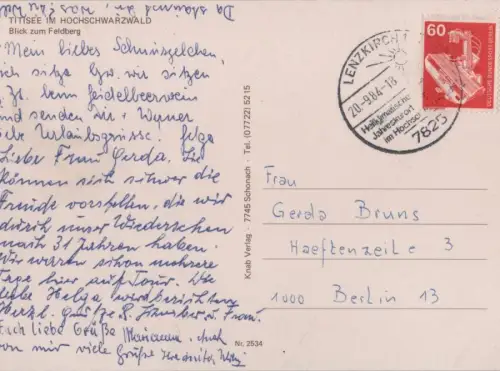 Da staunst du, was
TITISEE IM HOCHSCHWARZWALD
Blick zum Feldberg
Mein liebes Schnuzelchen,
ich sitze bzw. wir sitzen
z. Zt. beim Heidelbeerwein
und senden dir + Werner
liebe Urlaubsgrüsse. Helga
Liebe Frau Gerda. Sie
können sich schwer die
Freude vorstellen, die wir
durch unser Wiedersehen
nach 31 Jahren haben.
Wir waren schon mehrere
Tage hier auf Tour. Die
liebe Helga wird berichten
Herzl. Grüße & Frau.
Euch liebe Grüße Marianne. Auch
von mir viele Grüße
Knab Verlag · 7745 Schonach · Tel. (07722) 5215
Nr. 2534
LENZKIRCH 1
20.-9.84-18
Heilklimatischer
Jahreskurort
im Hochsch
7825
60
DEUTSCHE BUNDESPOST BERLIN
Frau
Gerda Bruns
Haeftenzeile 3
1000 Berlin 13